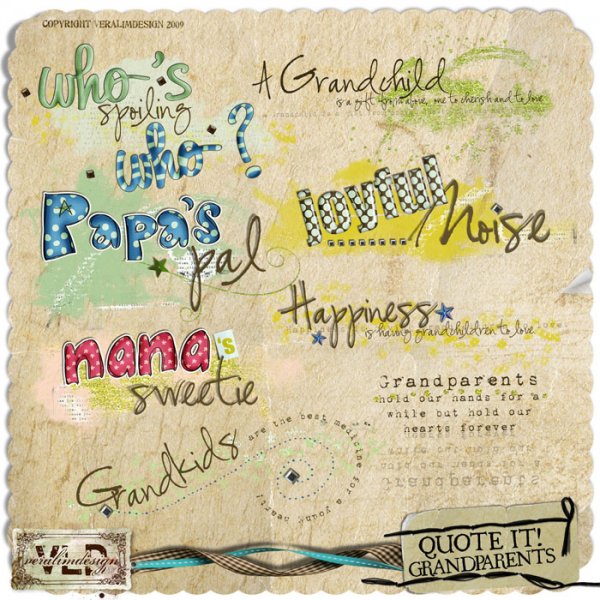 COPYRIGHT VERALIMDESIGN 2009
who's
spoiling
who?
A Grandchild
is a gift from above, one to cherish and to love
Papa's
pal
joyful
Noise
Happiness
is having grandchildren to love
nana's
sweetie
Grandparents
hold our hands for a
while but hold our
hearts forever
Grandkids
are the best medicine for a young heart!
VLD
veralimdesign
QUOTE IT!
GRANDPARENTS